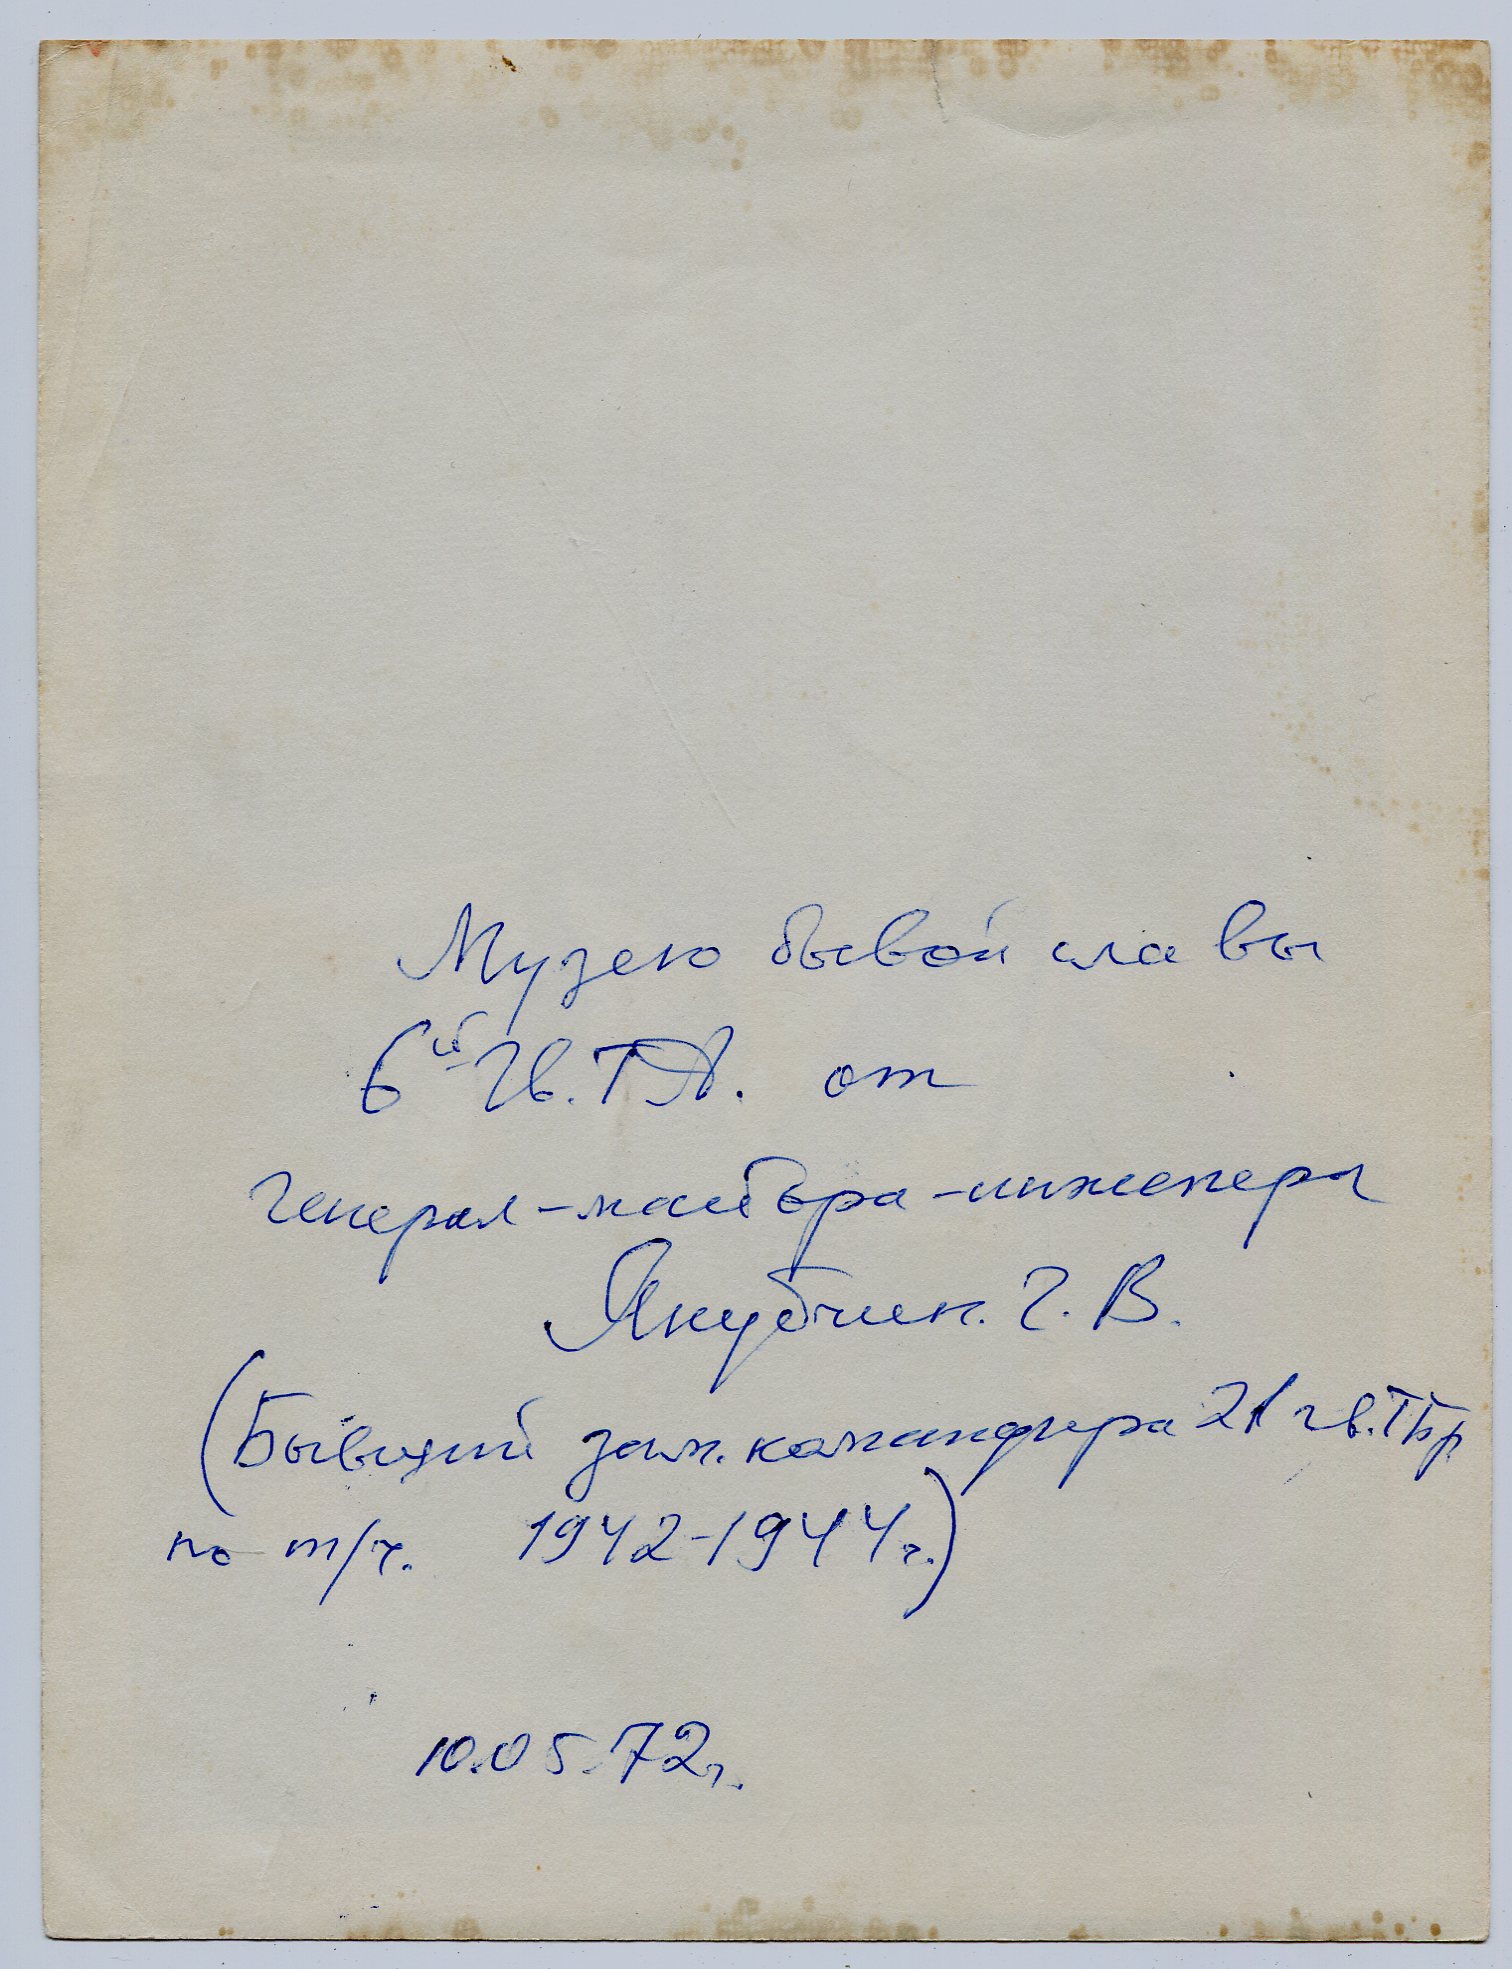 Музею боевой славы
6й Гв. ТА. от
генерал-майора-инженера
Якубчик. Г. В.
(Бывший зам. командира 21 гв. ТБр
по т/ч. 1942-1944г.)
10.05.72г.